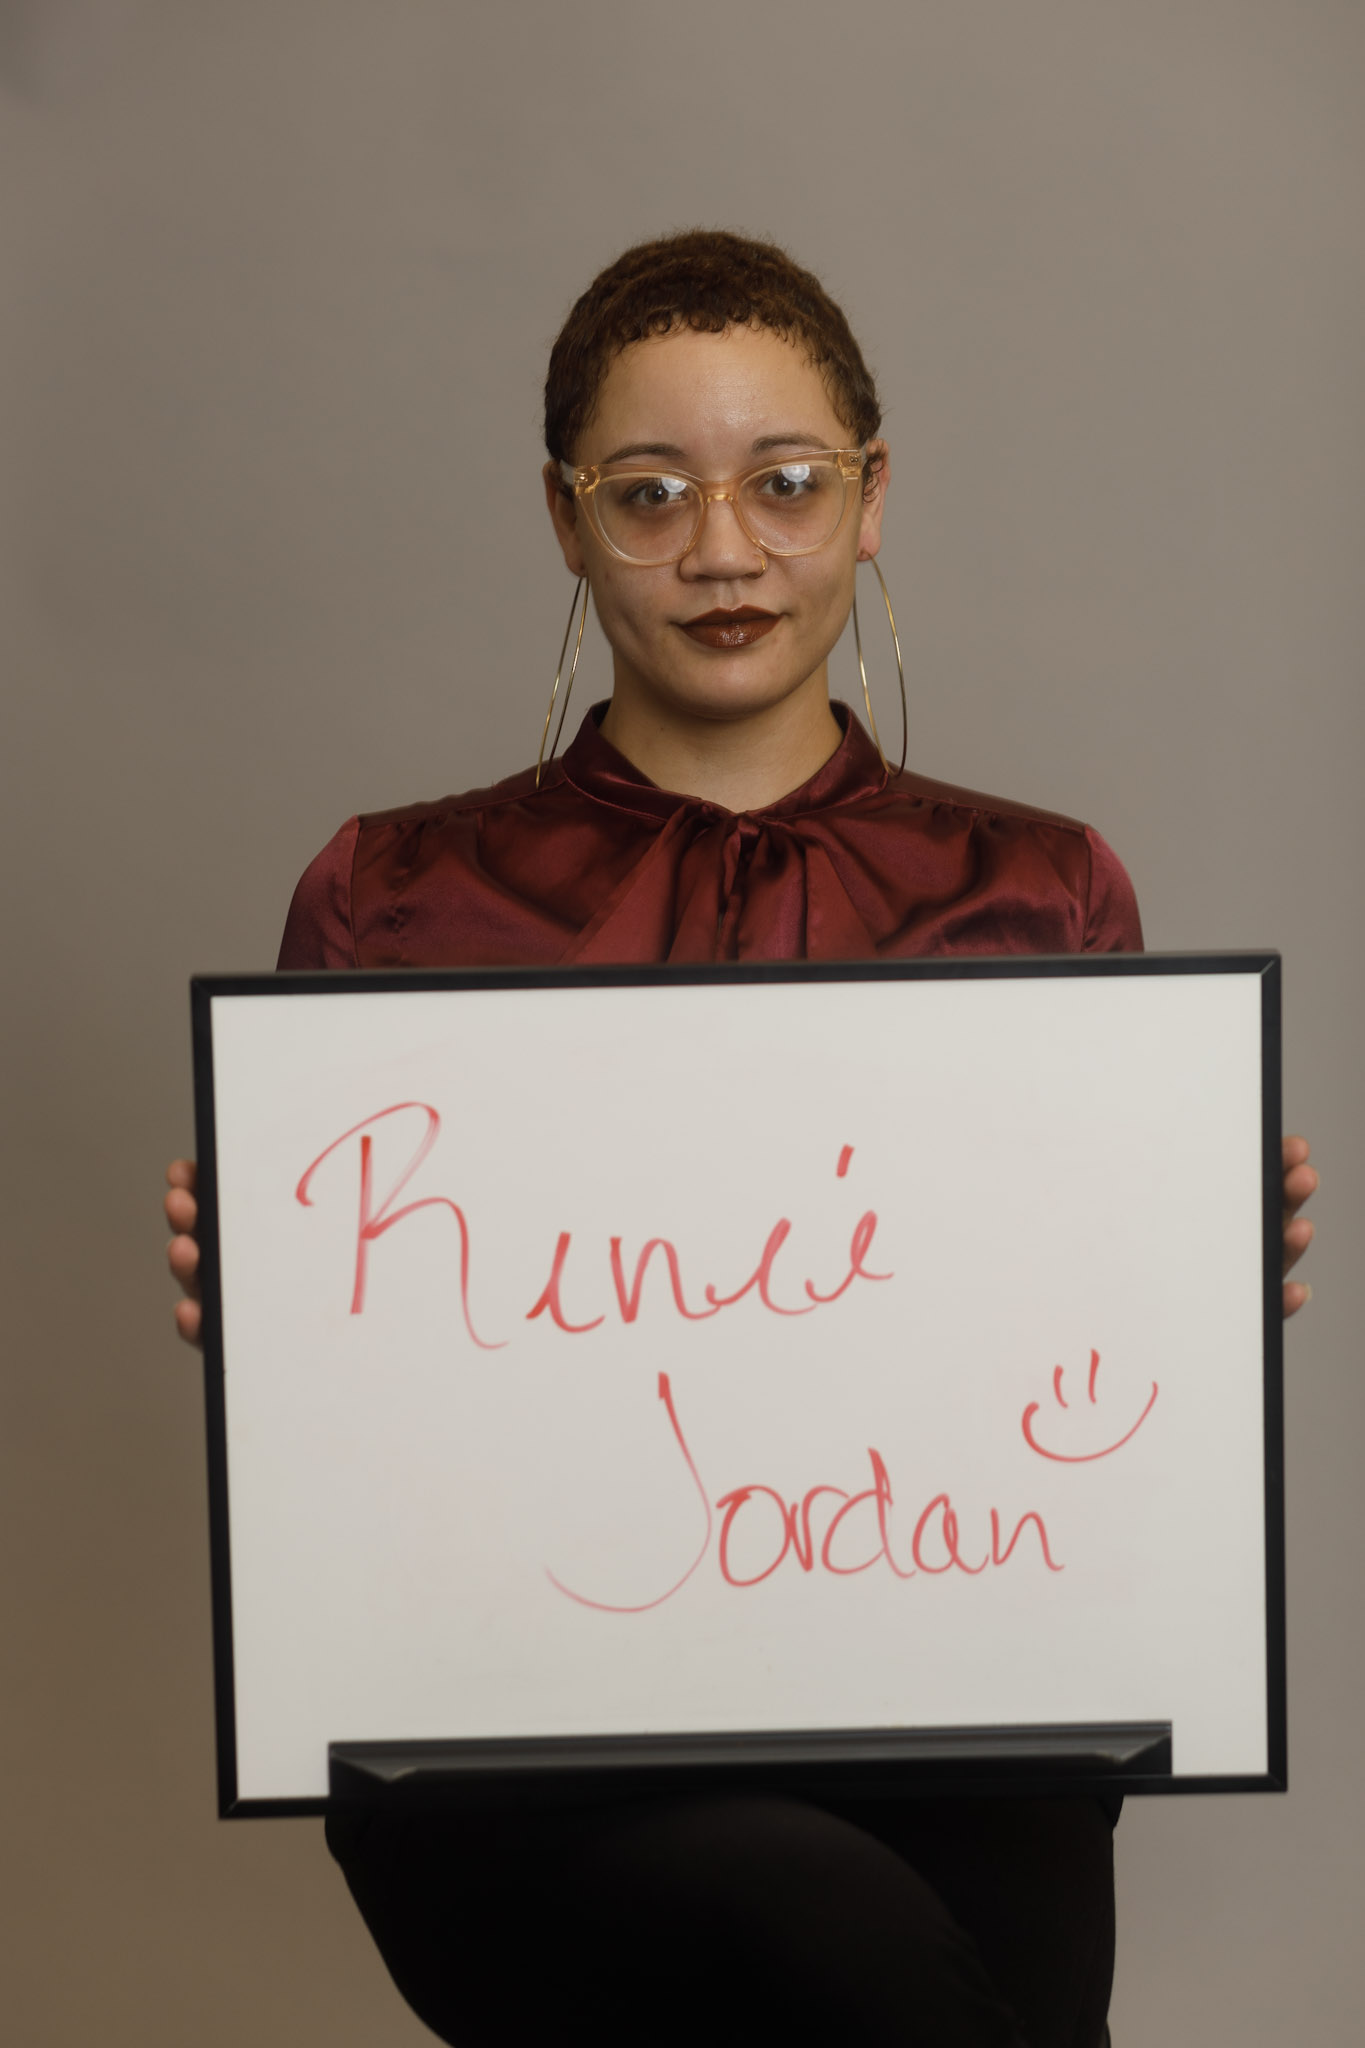 Reneé
Jordan